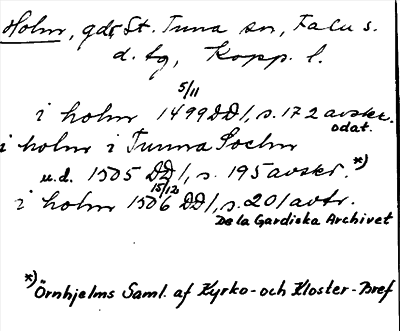 Holm, gdr St. Tuna sn, Falu s.
d. tg, Kopp. l.
5/11
i holm 1499 DD 1, s. 172 avskr.
odat.
i holm i Tunna Sochn
u.d. 1505 DD 1, s. 195 avskr. *)
15/12
i holm 1506 DD 1, s. 201 avtr.
De la Gardiska Archivet
*) Örnhjelms Saml. af Kyrko- och Kloster-Bref